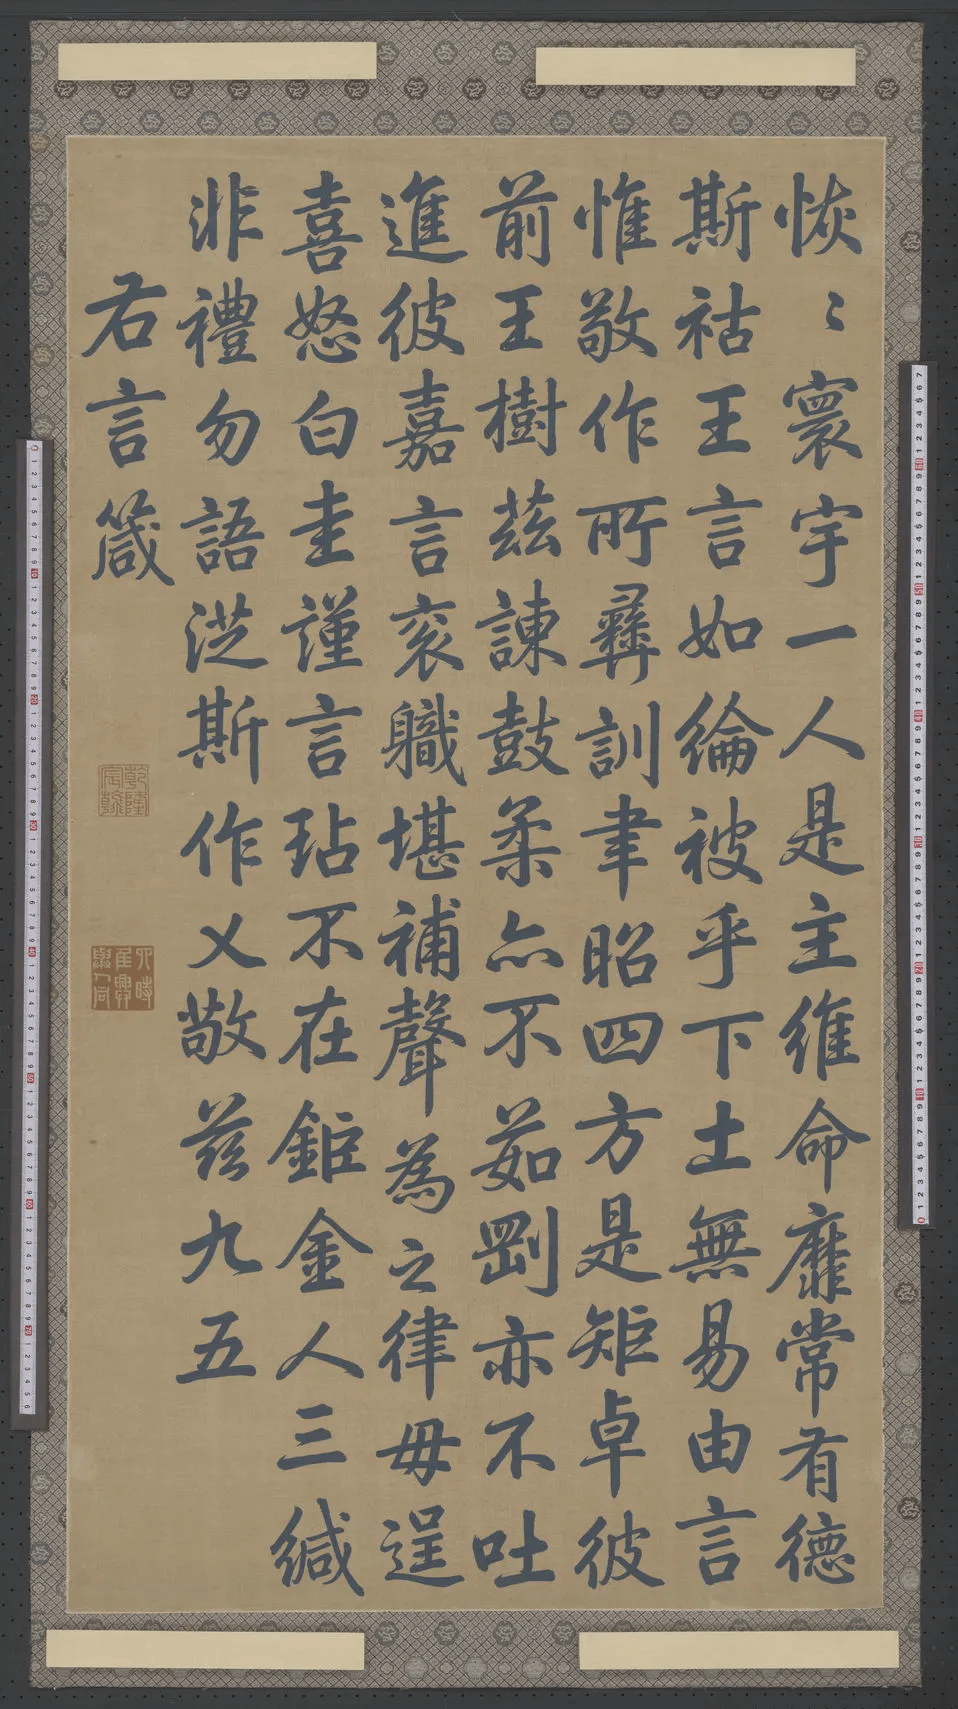 恢〻寰宇一人是主維命靡常有德
斯祜王言如綸被乎下土無易由言
惟敬作所彝訓聿昭四方是矩卓彼
前王樹茲諫鼓柔亦不茹剛亦不吐
進彼嘉言衮職堪補聲為之律毋逞
喜怒白圭謹言玷不在鉅金人三緘
非禮勿語從斯作乂敬茲九五
右言箴
乾隆宸翰
四時佳興與人同